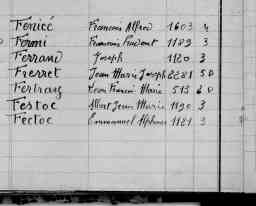 Fénicé François Alfred 1603 4
Fermi François Prudent 1182 3
Ferrand Joseph 1180 3
Ferret Jean Marie Joseph 2281 5 D
Fertray Jean Francis Marie 513 6 D
Festoc Albert Jean Marie 1190 3
Fectoc Emmanuel Alphonse 1181 3